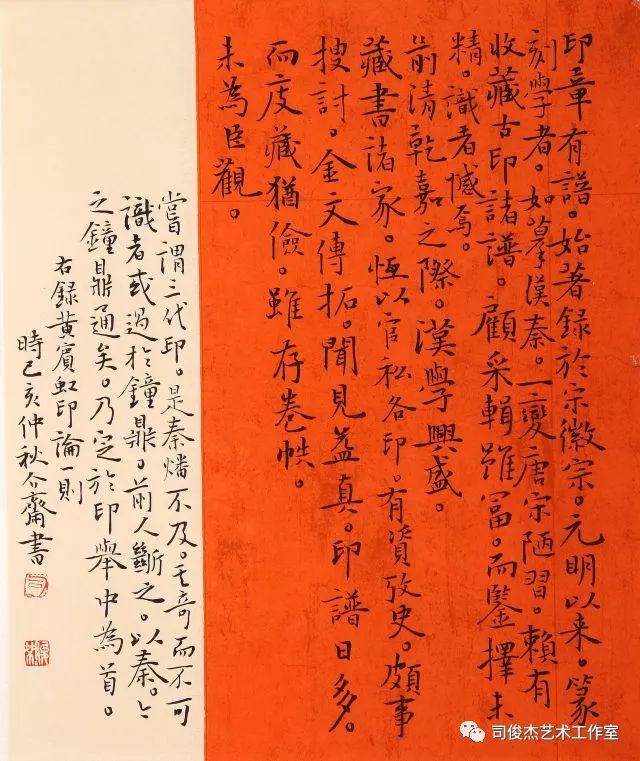 印章有譜。始著録於宗徽宗。元明以来。篆
刻學者。如摹漢秦。一變唐宋陋習。賴有
收藏古印諸譜。顧采輯雖富。而鑒擇未
精。識者憾焉。
前清乾嘉之際。漢學興盛。
藏書諸家。恆以官私各印。有資攷史。頗事
搜討。金文傳拓。聞見益真。印譜日多。
而庋藏猶儉。雖存卷帙。
未為臣觀。
嘗謂三代印。是秦燔不及。其奇而不可
識者或過於鐘鼎。前人斷之。以秦。今
之鐘鼎通矣。乃定於印舉中為首。
右録黄賓虹印論一則
時己亥仲秋介齋書
司俊杰艺术工作室